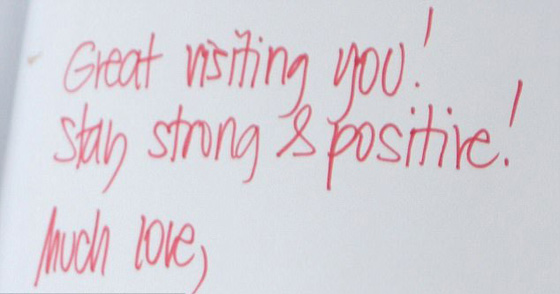 Great visiting you!
Stay strong & positive!
Much love,